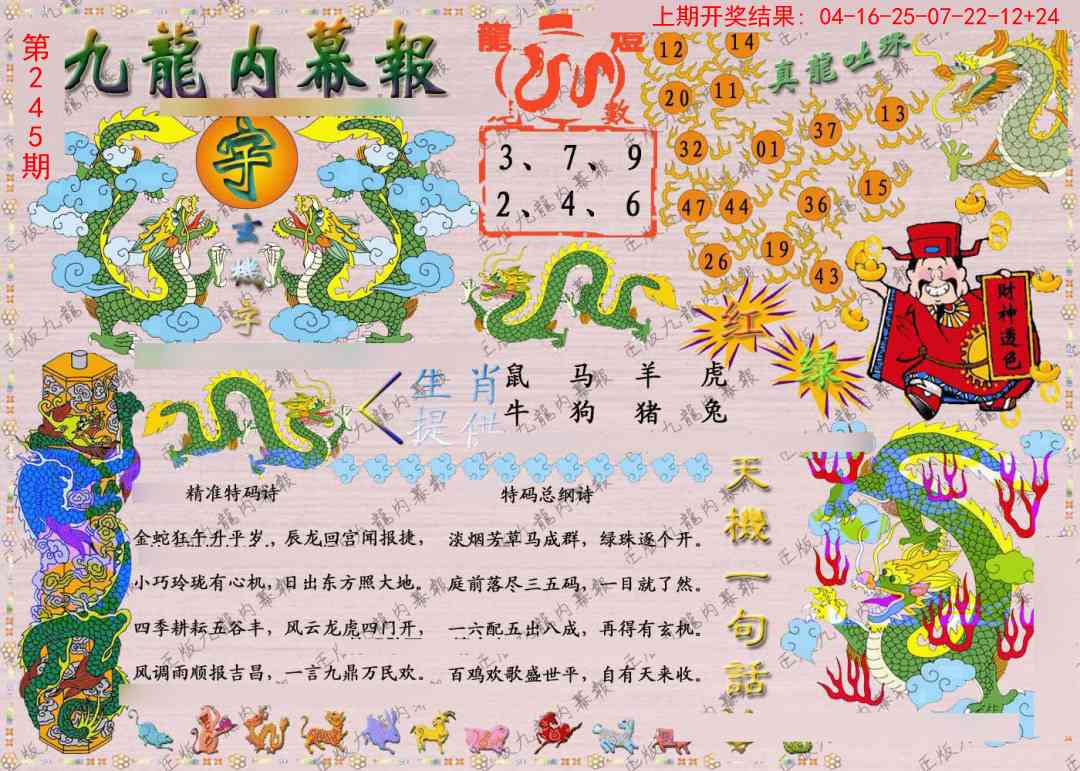 上期开奖结果: 04-16-25-07-22-12+24
第245期
九龍内幕報
龍 燈
數
3、7、9
2、4、6
真龍吐珠
12 14
20 11
13
37
32 01
15
47 44 36
19
26 43
字
玄
機
字
红
绿
财神透色
生肖
提供
鼠 马 羊 虎
牛 狗 猪 兔
精准特码诗
金蛇狂午升平岁,辰龙回宫闻报捷,
小巧玲珑有心机,日出东方照大地。
四季耕耘五谷丰,风云龙虎四门开,
风调雨顺报吉昌,一言九鼎万民欢。
特码总纲诗
淡烟芳草马成群,绿珠逐个开。
庭前落尽三五码,一目就了然。
一六配五出八成,再得有玄机。
百鸡欢歌盛世平,自有天来收。
天機一句話
正版九龍内幕報